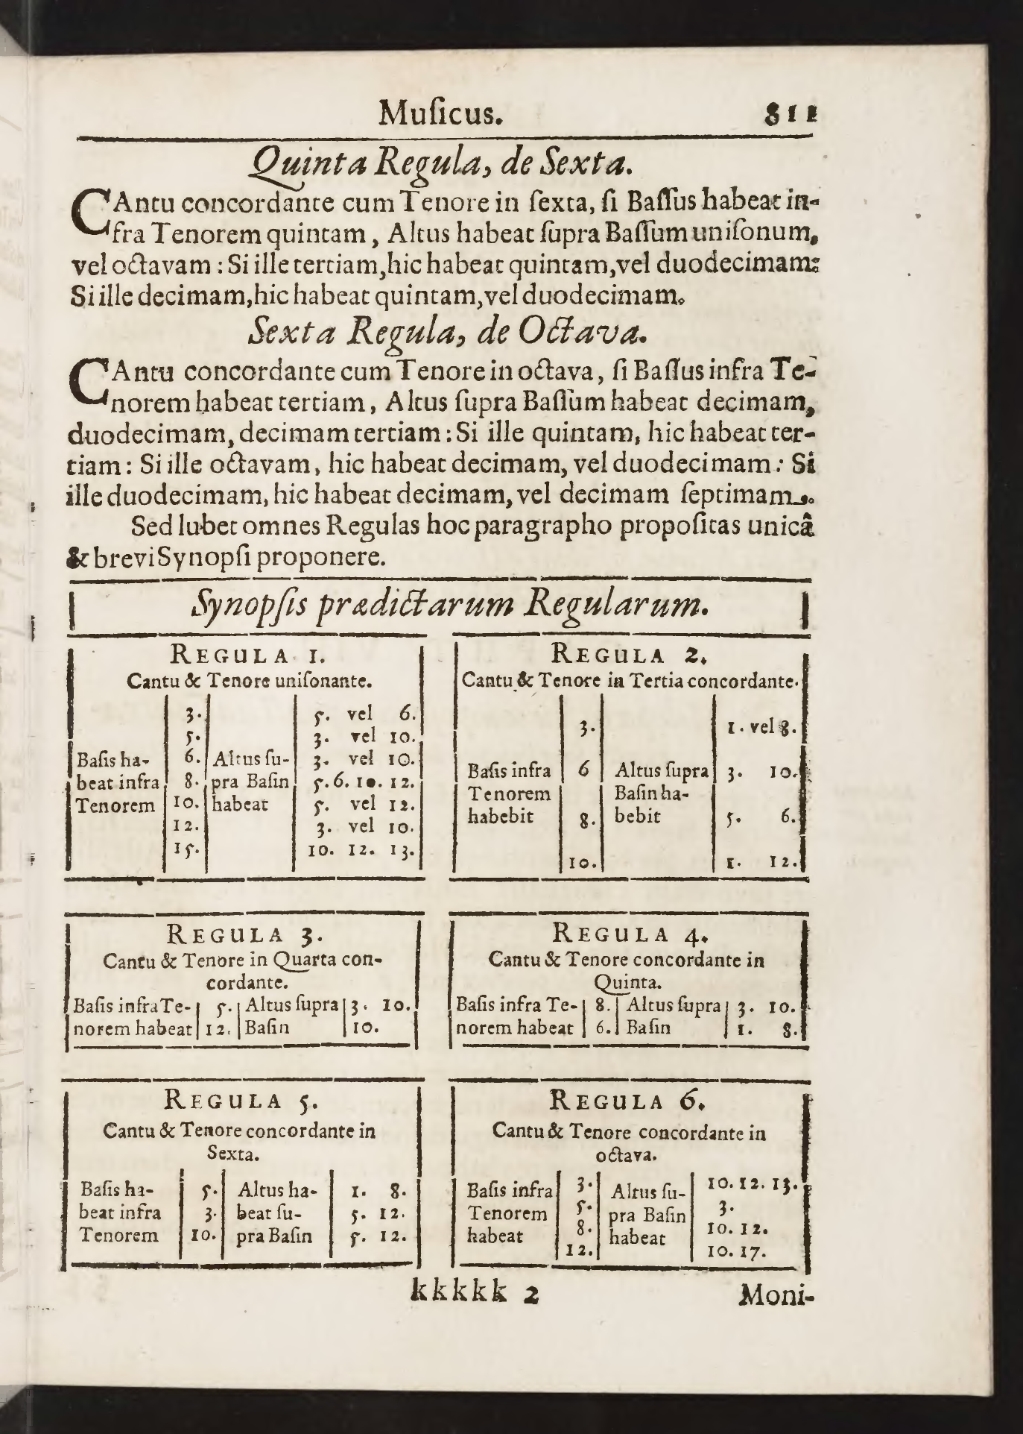 Muſicus. 811
Quinta Regula, de Sexta.
CAntu concordante cum Tenore in ſexta, ſi Baſſus habeat in-
fra Tenorem quintam, Altus habeat ſupra Baſſum uniſonum,
vel octavam : Si ille tertiam, hic habeat quintam, vel duodecimam:
Si ille decimam, hic habeat quintam, vel duodecimam.
Sexta Regula, de Octava.
CAntu concordante cum Tenore in octava, ſi Baſſus infra Te-
norem habeat tertiam, Altus ſupra Baſſum habeat decimam,
duodecimam, decimam tertiam : Si ille quintam, hic habeat ter-
tiam : Si ille octavam, hic habeat decimam, vel duodecimam : Si
ille duodecimam, hic habeat decimam, vel decimam ſeptimam.
Sed lubet omnes Regulas hoc paragrapho propoſitas unicâ
& brevi Synopſi proponere.
Synopſis prædictarum Regularum.
REGULA 1.
Cantu & Tenore uniſonante.
3. 5. vel 6.
5. 3. vel 10.
Baſis ha- 6. Altus ſu- 3. vel 10.
beat infra 8. pra Baſin 5. 6. 10. 12.
Tenorem 10. habeat 5. vel 12.
12. 3. vel 10.
15. 10. 12. 13.
REGULA 2.
Cantu & Tenore in Tertia concordante.
3. 1. vel 8.
Baſis infra 6 Altus ſupra 3. 10.
Tenorem Baſin ha-
habebit 8. bebit 5. 6.
10. 1. 12.
REGULA 3.
Cantu & Tenore in Quarta con-
cordante.
Baſis infra Te- 5. Altus ſupra 3. 10.
norem habeat 12. Baſin 10.
REGULA 4.
Cantu & Tenore concordante in
Quinta.
Baſis infra Te- 8. Altus ſupra 3. 10.
norem habeat 6. Baſin 1. 8.
REGULA 5.
Cantu & Tenore concordante in
Sexta.
Baſis ha- 5. Altus ha- 1. 8.
beat infra 3. beat ſu- 5. 12.
Tenorem 10. pra Baſin 5. 12.
REGULA 6.
Cantu & Tenore concordante in
octava.
Baſis infra 3. Altus ſu- 10. 12. 13.
Tenorem 5. pra Baſin 3.
habeat 8. habeat 10. 12.
12. 10. 17.
kkkkk 2 Moni-